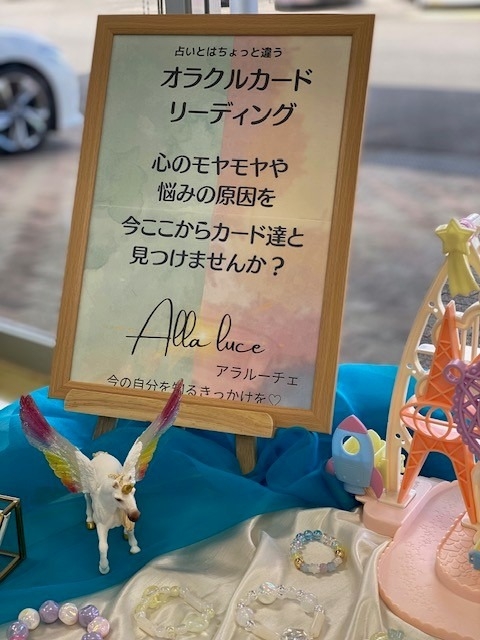 占いとはちょっと違う
オラクルカード
リーディング
心のモヤモヤや
悩みの原因を
今ここからカード達と
見つけませんか？
Alla luce
アラルーチェ
今の自分を知るきっかけを♡